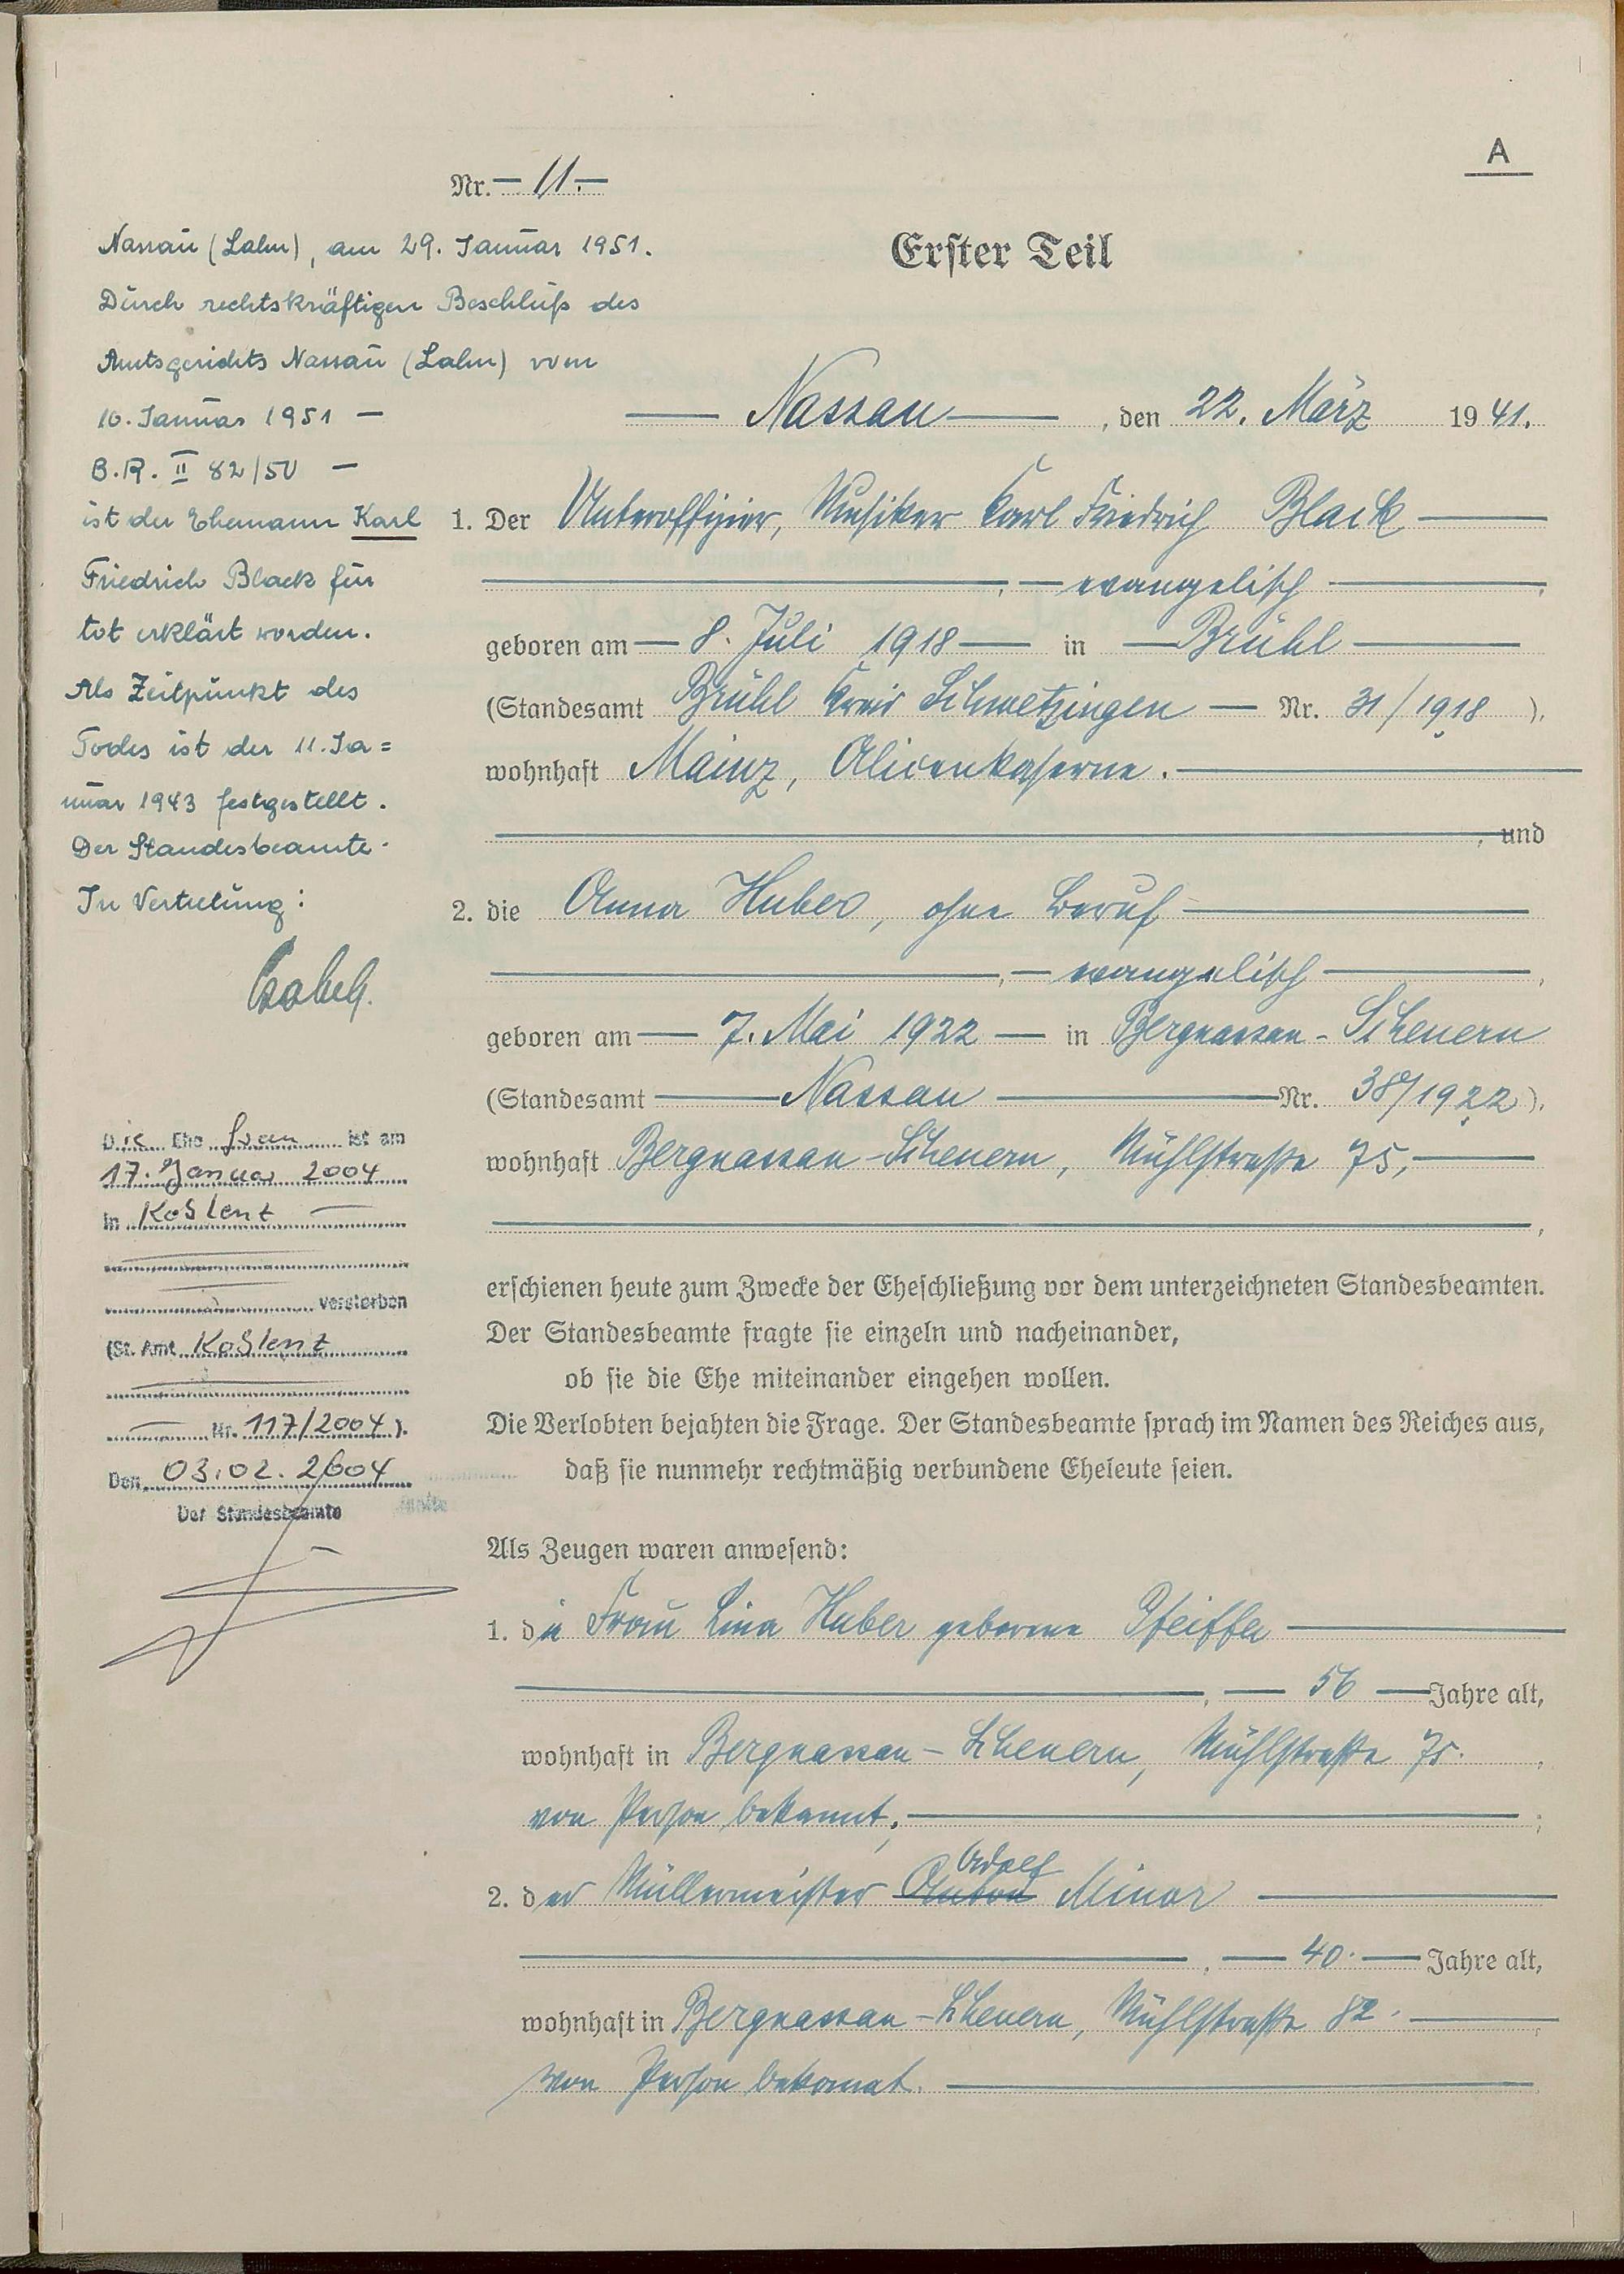 A
Nr. — 11. —
Erster Teil
Nassau, den 22. März 1941.
1. Der Unteroffizier, Musiker Karl Friedrich Black
, — evangelisch —,
geboren am — 8. Juli 1918 — in — Brühl —
(Standesamt Brühl Kreis Schwetzingen — Nr. 31/1918 ),
wohnhaft Mainz, Alicenkaserne.
, und
2. die Anna Huber, ohne Beruf
, — evangelisch —,
geboren am — 7. Mai 1922 — in Bergnassau-Scheuern
(Standesamt — Nassau — Nr. 38/1922 ),
wohnhaft Bergnassau-Scheuern, Mühlstraße 75,
,
erschienen heute zum Zwecke der Eheschließung vor dem unterzeichneten Standesbeamten.
Der Standesbeamte fragte sie einzeln und nacheinander,
ob sie die Ehe miteinander eingehen wollen.
Die Verlobten bejahten die Frage. Der Standesbeamte sprach im Namen des Reiches aus,
daß sie nunmehr rechtmäßig verbundene Eheleute seien.
Als Zeugen waren anwesend:
1. die Frau Lina Huber geborene Pfeiffer
, — 56 — Jahre alt,
wohnhaft in Bergnassau-Scheuern, Mühlstraße 75.
von Person bekannt,
2. der Müllermeister Anton Adolf Minor
, — 40. — Jahre alt,
wohnhaft in Bergnassau-Scheuern, Mühlstraße 82.
von Person bekannt.
Nassau (Lahn), am 29. Januar 1951.
Durch rechtskräftigen Beschluß des
Amtsgerichts Nassau (Lahn) vom
10. Januar 1951 —
B.R. II 82/50 —
ist der Ehemann Karl
Friedrich Black für
tot erklärt worden.
Als Zeitpunkt des
Todes ist der 11. Ja=
nuar 1943 festgestellt.
Der Standesbeamte.
In Vertretung:
Die Ehefrau ist am
17. Januar 2004
in Koblenz —
verstorben
(St. Amt Koblenz
Nr. 117/2004 ).
Den 03.02.2004
Der Standesbeamte